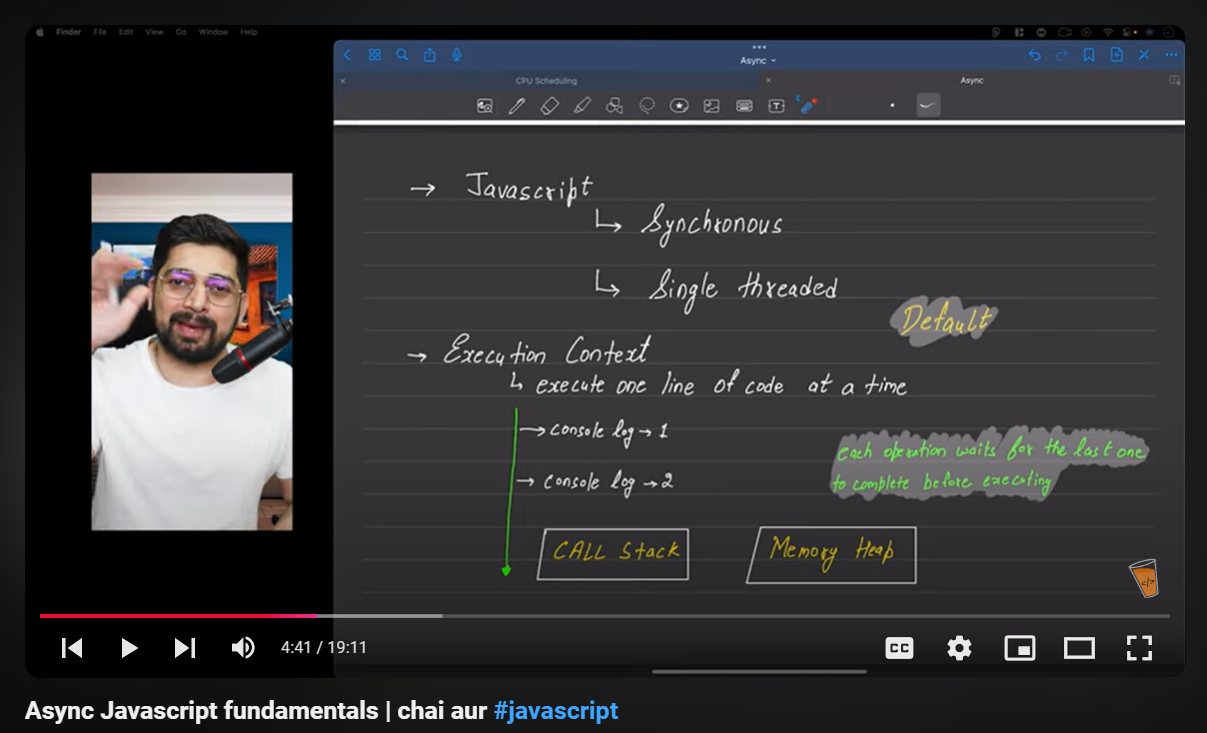 Finder File Edit View Go Window Help
Async
CPU Scheduling
Async
T
→ Javascript
↳ Synchronous
↳ Single threaded
Default
→ Execution Context
↳ execute one line of code at a time
→ console log → 1
each operation waits for the last one
to complete before executing
→ console log → 2
CALL Stack
Memory Heap
</>
4:41 / 19:11
CC
Async Javascript fundamentals | chai aur #javascript